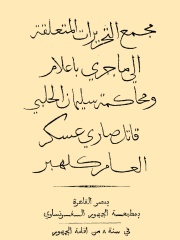 مجمع التحريرات المتعلقة
الى ماجرى باعلام
ومحاكمة سليمان الحلبي
قاتل صاري عسكر
العام كلهبر
بمصر القاهرة
بمطبعة الجمهور الفرنساوي
في سنة ٨ من اقامة الجمهور